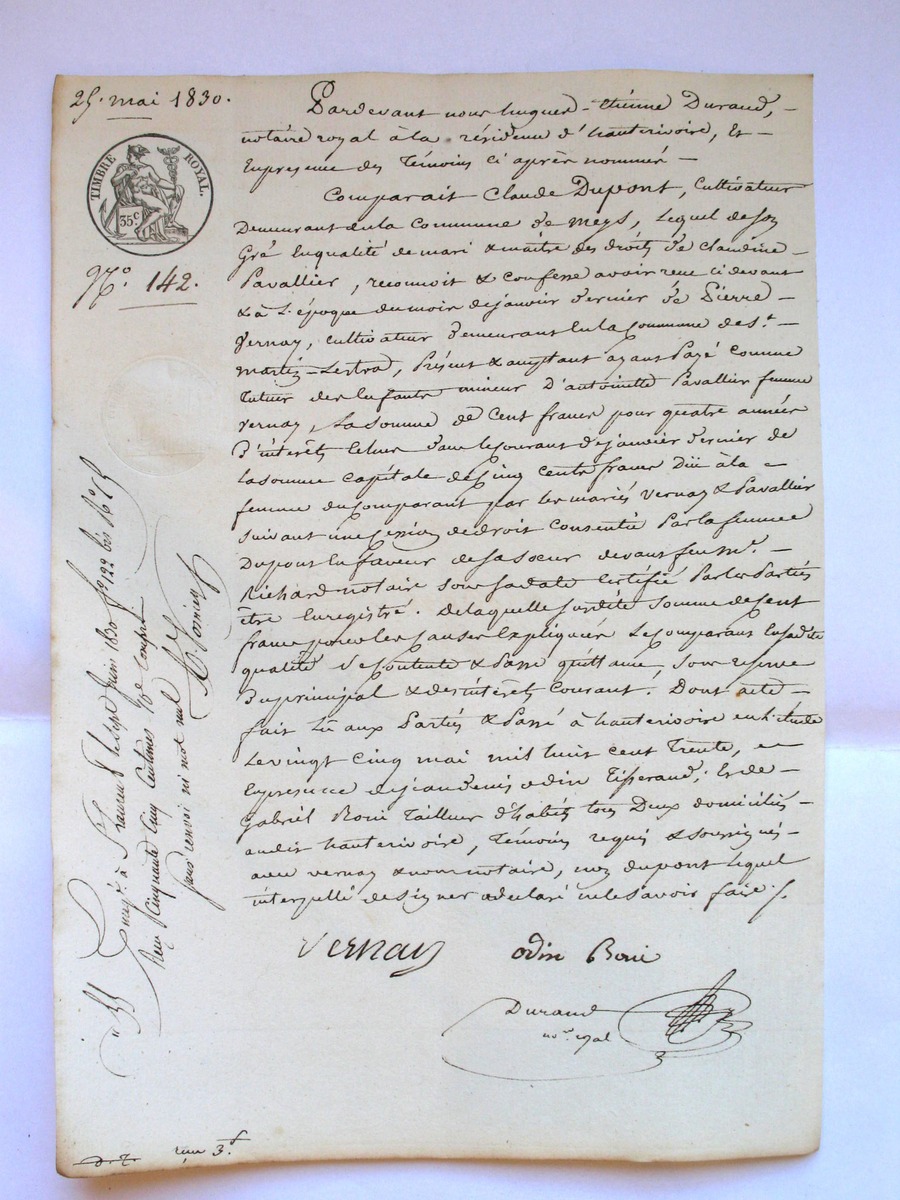 25. mai 1830.
TIMBRE ROYAL.
35 c.
N.o 142.
Pardevant nous hugues-étienne Durand,
notaire royal à la résidence d'hauterivoire, Et
En presence des Témoins ci après nommés
Comparait Claude Dupont, Cultivateur
Demeurant en la Commune de Meys, Lequel de son
Gré En qualité de mari & maître des droits de Claudine
Pavallier, reconnoit & confesse avoir reçu ci devant
& à L'époque du mois de janvier Dernier de Pierre
Vernay, Cultivateur Demeurant En la Commune de St.
Martin-Lestra, Présent & acceptant ayant Payé comme
Tuteur des Enfants mineur D'antoinette Pavallier femme
Vernay, La Somme de Cent francs pour quatre années
D'intérêts Echus dans le Courant de janvier Dernier de
la somme capitale de Cinq Cents francs Düe à la
femme du Comparant par les mariés Vernay & Pavallier
suivant une Cession de droit Consentie Par la femme
Dupont En faveur de sa Sœur devant feu Me.
Richard notaire sous sa date Certifiée Par les Parties
être Enregistré. De laquelle susdite Somme de Cent
francs pour les Causes Expliquées Le Comparant En sadite
qualité Se Contente & Passe quittance, Sous reserve
Du principal & des intérêts Courant. Dont acte
fait Lû aux Parties & Passé à hauterivoire En l'étude
Le vingt Cinq mai mil huit Cent Trente, en
Presence de jean denis odin Tisserand, Et de
Gabriel Boni Tailleur d'habits tous Deux domiciliés
audit hauterivoire, Témoins requis & soussignés
avec Vernay & nous notaire, non dupont Lequel
interpellé de Signer a déclaré ne le Savoir faire.
Vernay odin Boni
Durand
no.re royal
Enreg.é à St Laurent juin 1830 fo 122
Reçu Cinquante Cinq Centimes Dme Compris.
sans renvoi ni mot nul
reçu 3.f